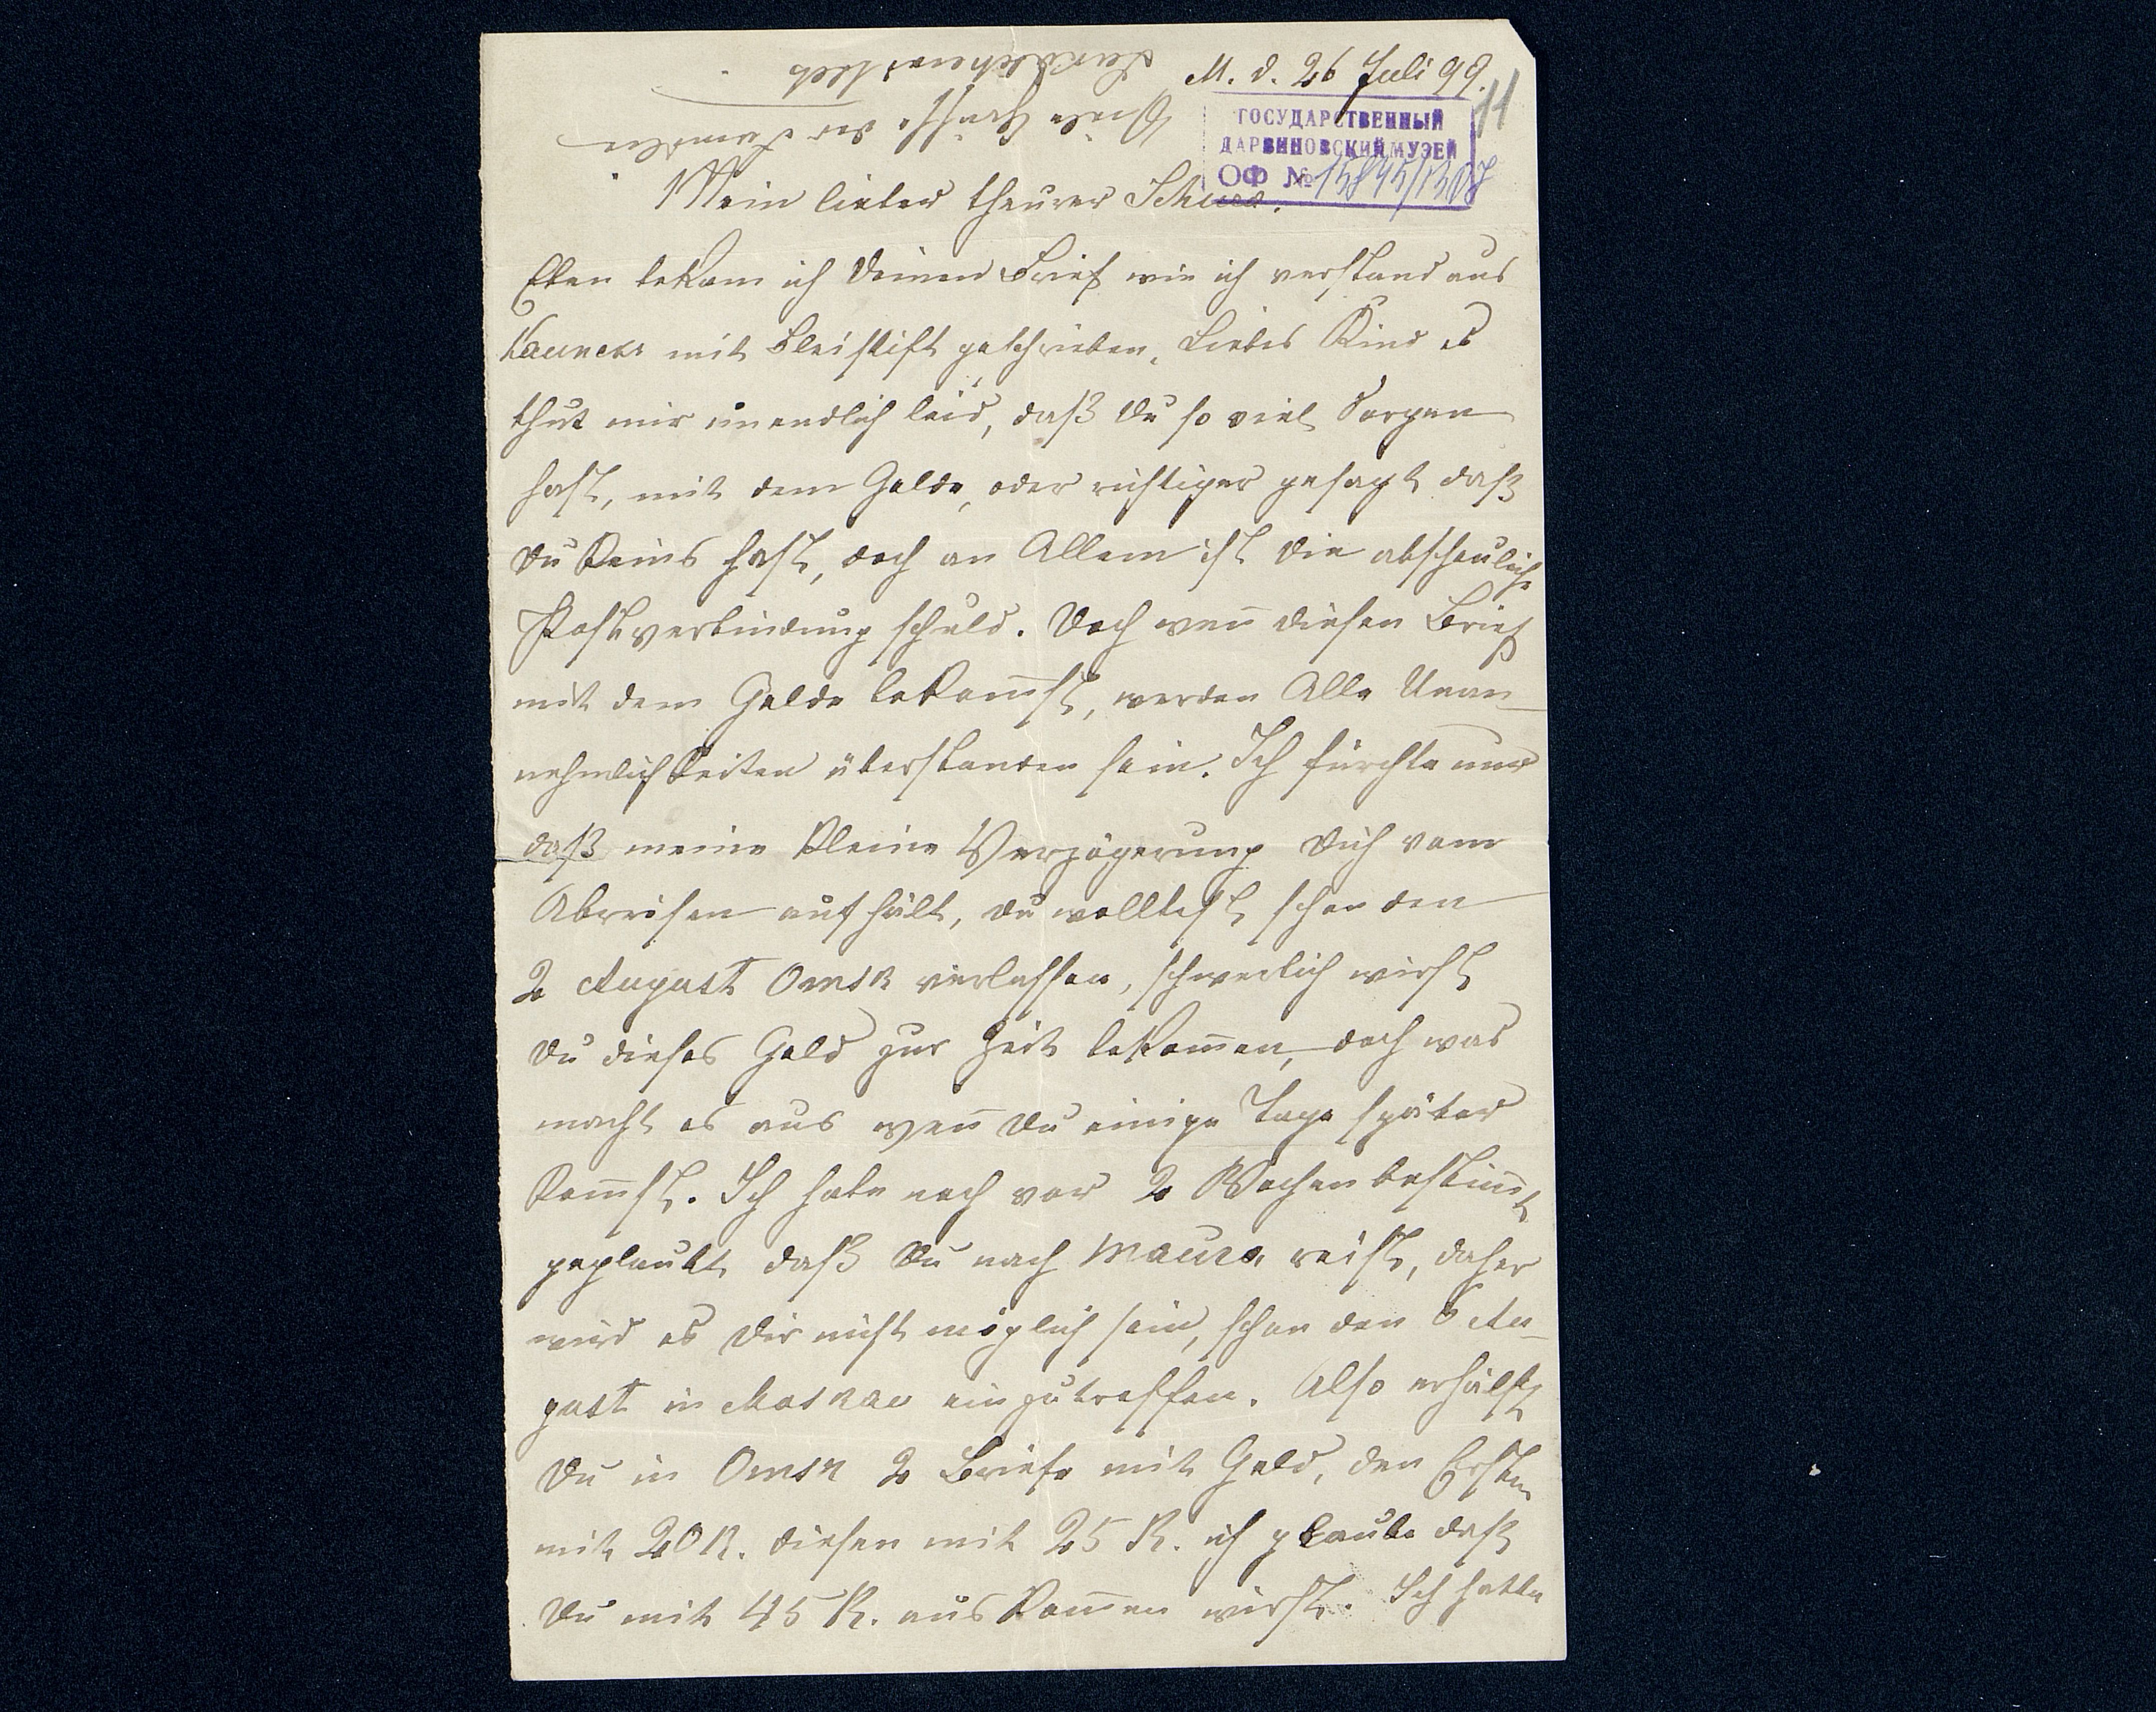 M. d. 26 Juli 99.
11
ГОСУДАРСТВЕННЫЙ
ДАРВИНОВСКИЙ МУЗЕЙ
ОФ №
Viele Grüsse der Familie
Mein lieber theurer Schura.
Eben bekam ich deinen Brief wie ich verstand aus
mit Bleistift geschrieben. Liebes Kind es
thut mir unendlich leid, daß du so viel Sorgen
hast, mit dem Gelde, oder richtiger gesagt daß
du keins hast, doch an Allem ist die abscheuliche
Postverbindung schuld. Doch weñ diesen Brief
mit dem Gelde bekom̃st, werden Alle Unan-
nehmlichkeiten überstanden sein. Ich fürchte nur
daß meine kleine Verzögerung dich vom
Abreisen aufhält, du wolltest schon den
2 August Omsk verlassen, schwerlich wirst
du dieses Geld zur Zeit bekom̃en, doch was
macht es aus weñ du einige Tage später
kom̃st. Ich habe noch vor 2 Wochen bestim̃t
geglaubt daß du nach reist, daher
wird es dir nicht möglich sein, schon den 6 Au-
gust in Moskau einzutreffen. Also erhälst
du in Omsk 2 Briefe mit Geld, den Ersten
mit 20 R. diesen mit 25 R. ich glaube daß
du mit 45 R. auskom̃en wirst. Ich hatte